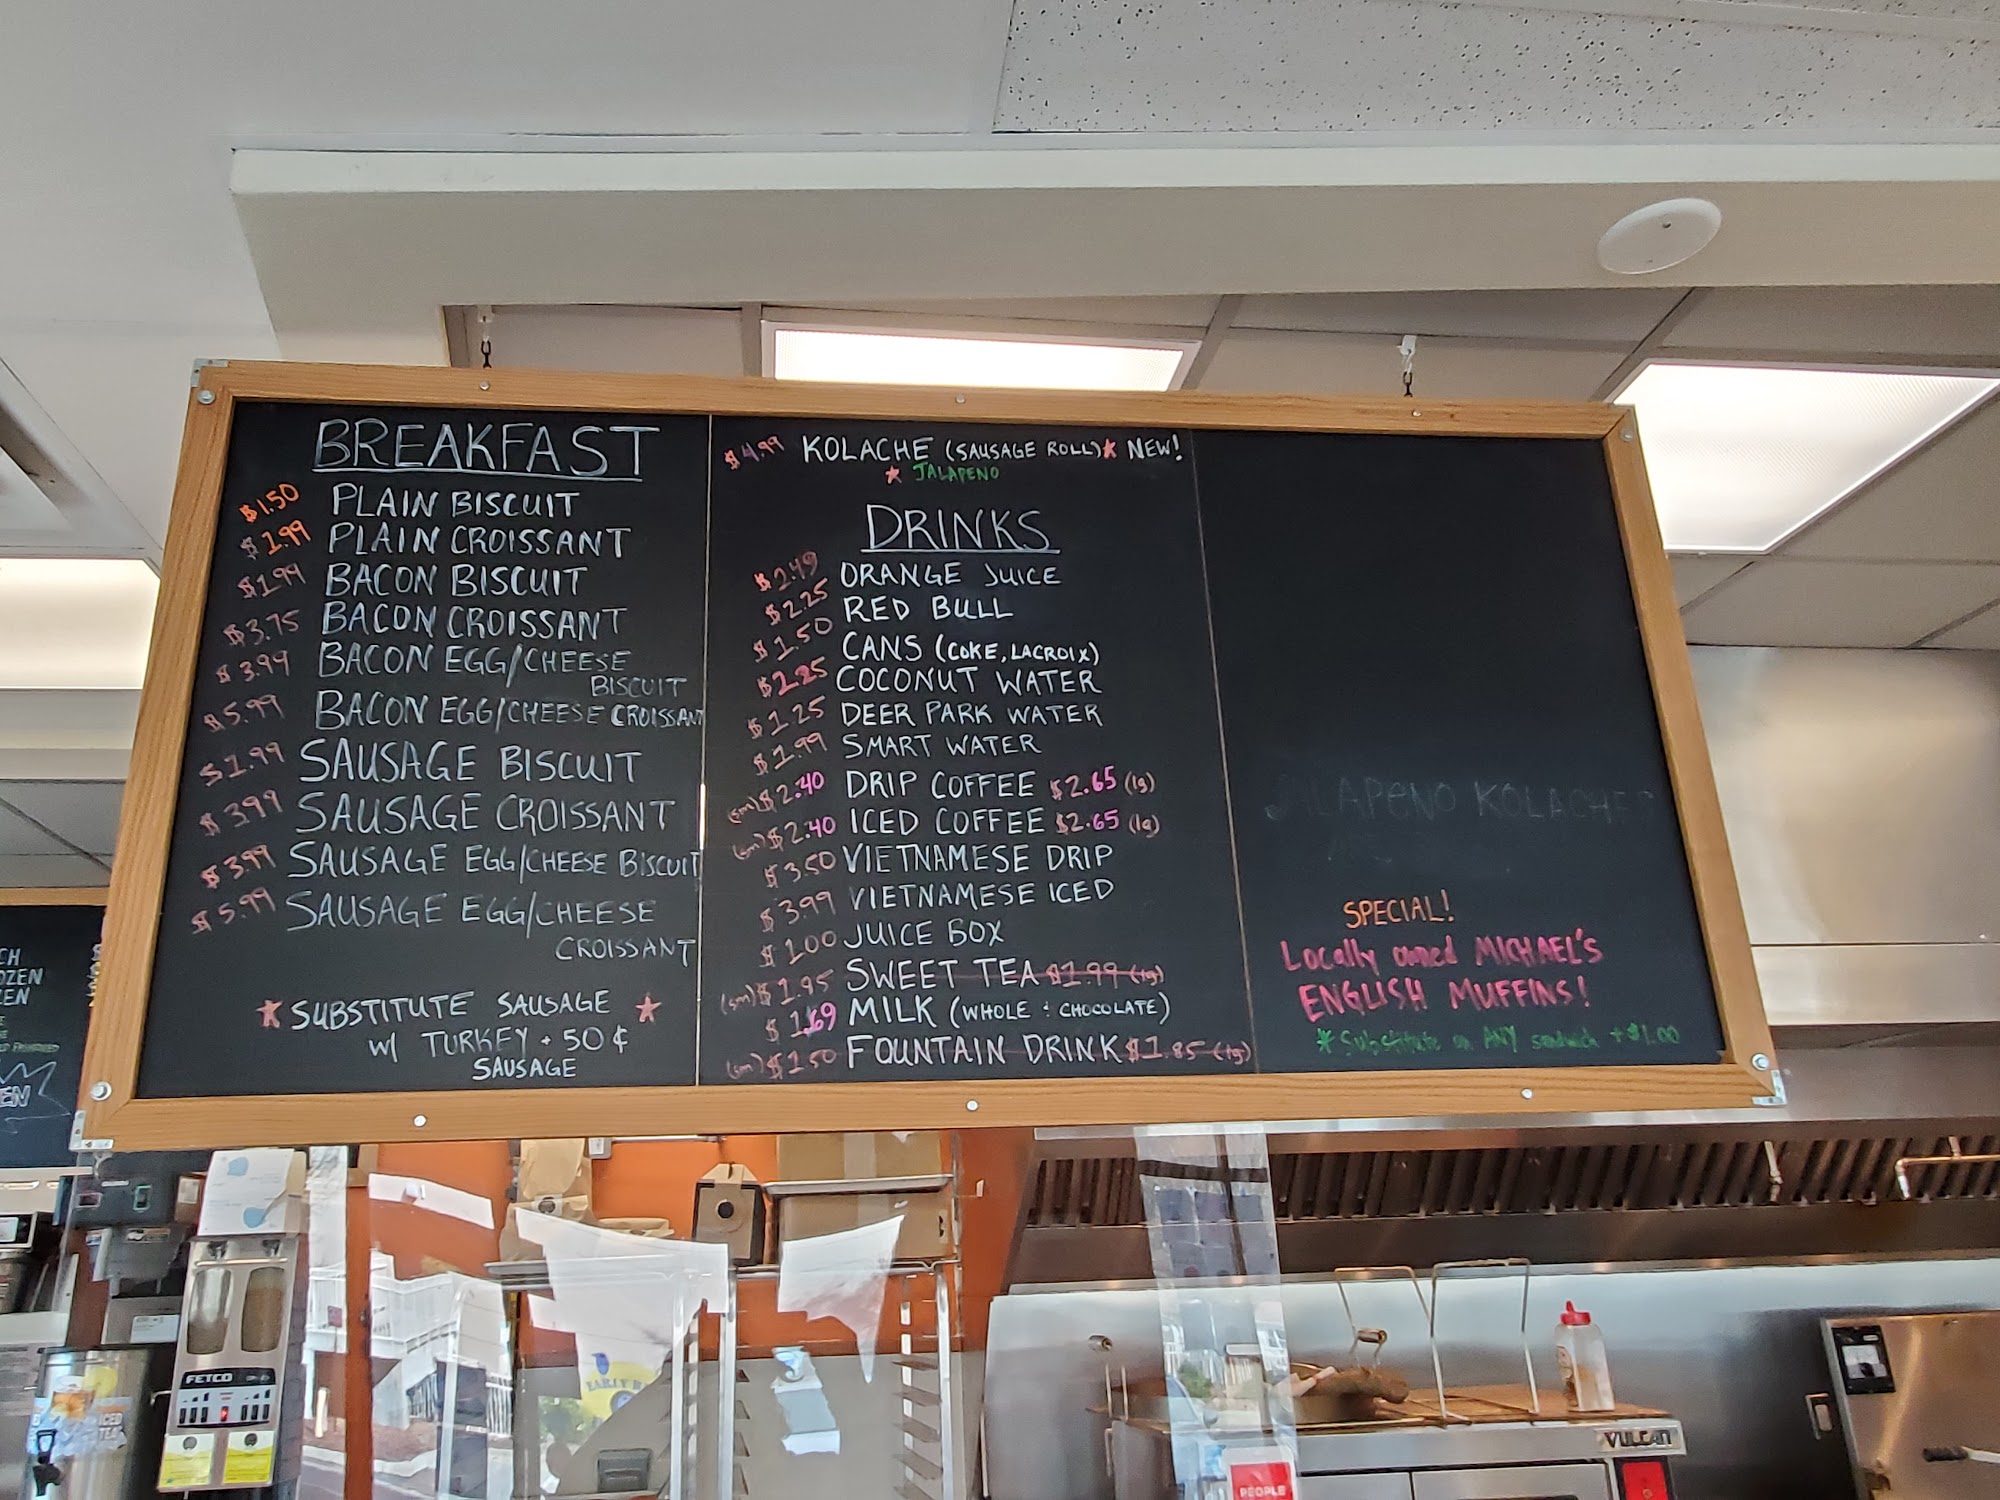 BREAKFAST
$1.50 PLAIN BISCUIT
$1.99 PLAIN CROISSANT
$1.99 BACON BISCUIT
$3.75 BACON CROISSANT
$3.99 BACON EGG/CHEESE
BISCUIT
$5.99 BACON EGG/CHEESE CROISSANT
$1.99 SAUSAGE BISCUIT
$3.99 SAUSAGE CROISSANT
$3.99 SAUSAGE EGG/CHEESE BISCUIT
$5.99 SAUSAGE EGG/CHEESE
CROISSANT
SUBSTITUTE SAUSAGE
W/ TURKEY + 50¢
SAUSAGE
$4.99 KOLACHE (SAUSAGE ROLL) NEW!
JALAPENO
DRINKS
$2.49 ORANGE JUICE
$2.25 RED BULL
$1.50 CANS (COKE, LACROIX)
$2.25 COCONUT WATER
$1.25 DEER PARK WATER
$1.99 SMART WATER
(sm) $2.40 DRIP COFFEE $2.65 (lg)
(sm) $2.40 ICED COFFEE $2.65 (lg)
$3.50 VIETNAMESE DRIP
$3.99 VIETNAMESE ICED
$1.00 JUICE BOX
(sm) $1.95 SWEET TEA $1.99 (lg)
$1.69 MILK (WHOLE + CHOCOLATE)
(sm) $1.50 FOUNTAIN DRINK $1.85 (lg)
JALAPENO KOLACHE
SPECIAL!
Locally owned MICHAEL'S
ENGLISH MUFFINS!
* Substitute on ANY sandwich + $1.00
FETCO
ICED
TEA
EARLY
VULCAN
PEOPLE